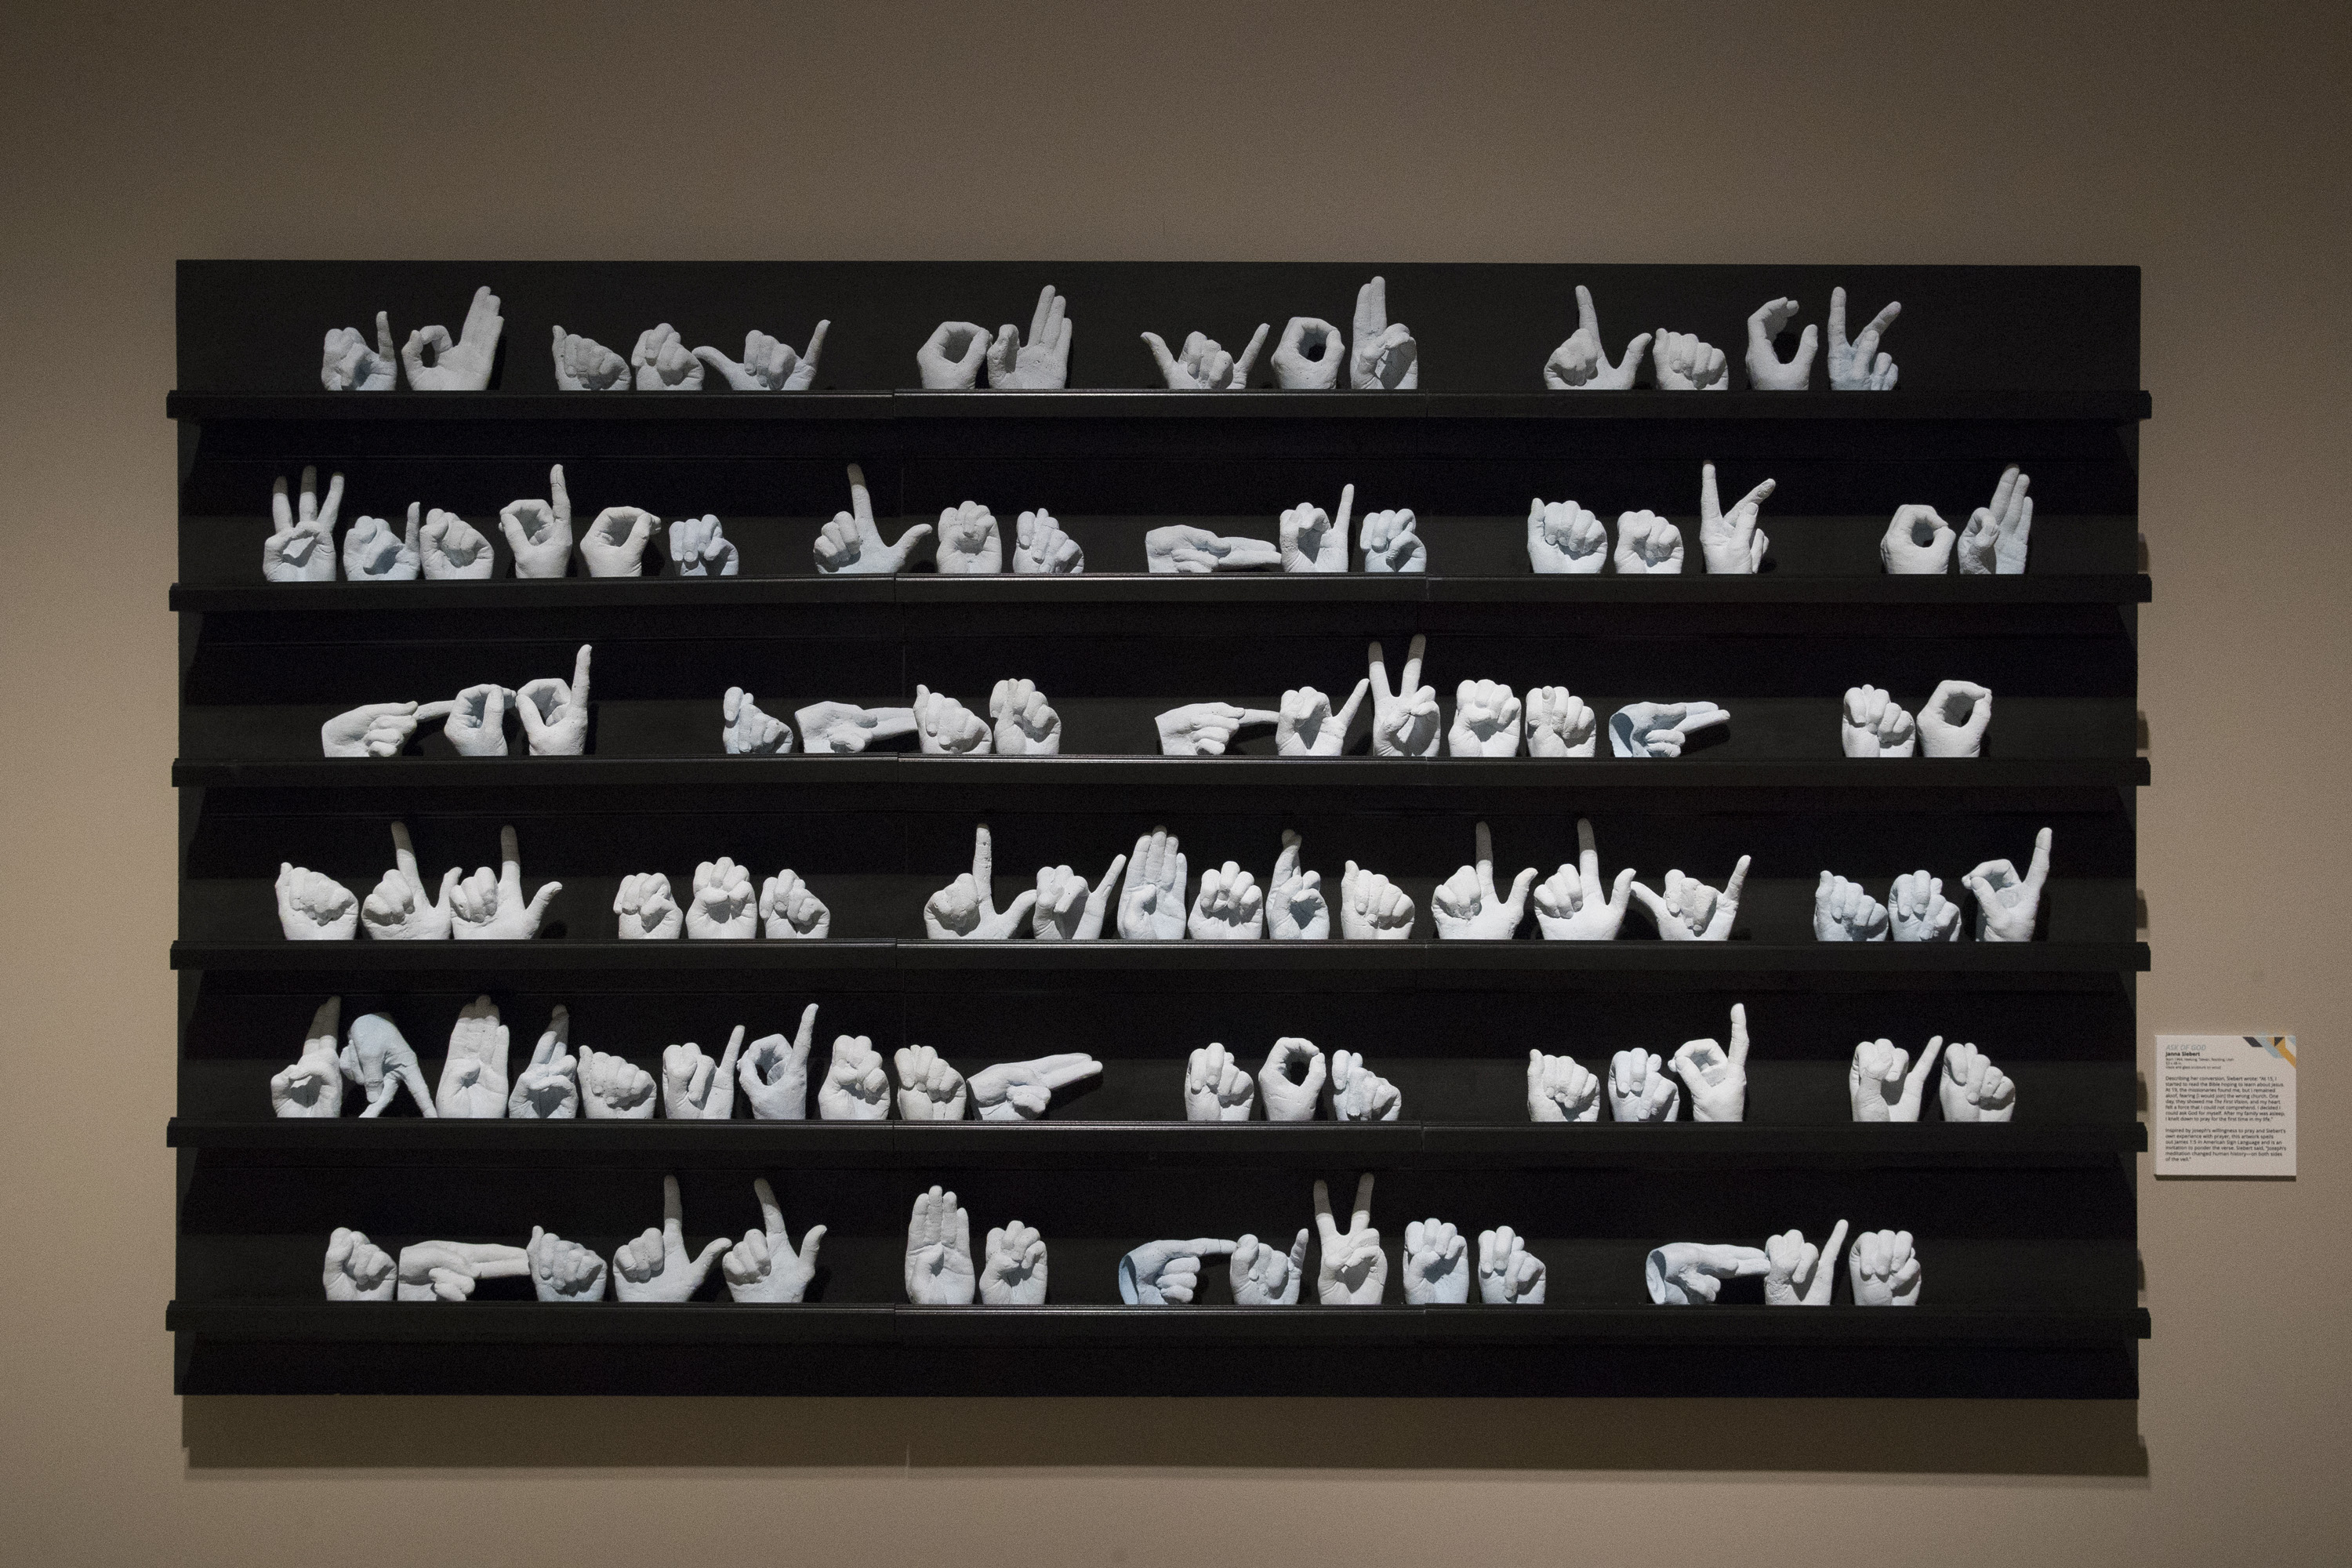 ASK OF GOD
Janna Siebert
Describing her conversion, Siebert wrote: "At 15, I
started to read the Bible hoping to learn about Jesus.
At 19, the missionaries found me, but I remained
aloof, fearing [I would join] the wrong church. One
day, they showed me The First Vision, and my heart
felt a force that I could not comprehend. I decided I
could ask God for myself. After my family was asleep,
I knelt down to pray for the first time in my life."
Inspired by Joseph's willingness to pray and Siebert's
own experience with prayer, this artwork spells
out James 1:5 in American Sign Language and is an
invitation to ponder the verse. Siebert said, "Joseph's
meditation changed human history—on both sides
of the veil."